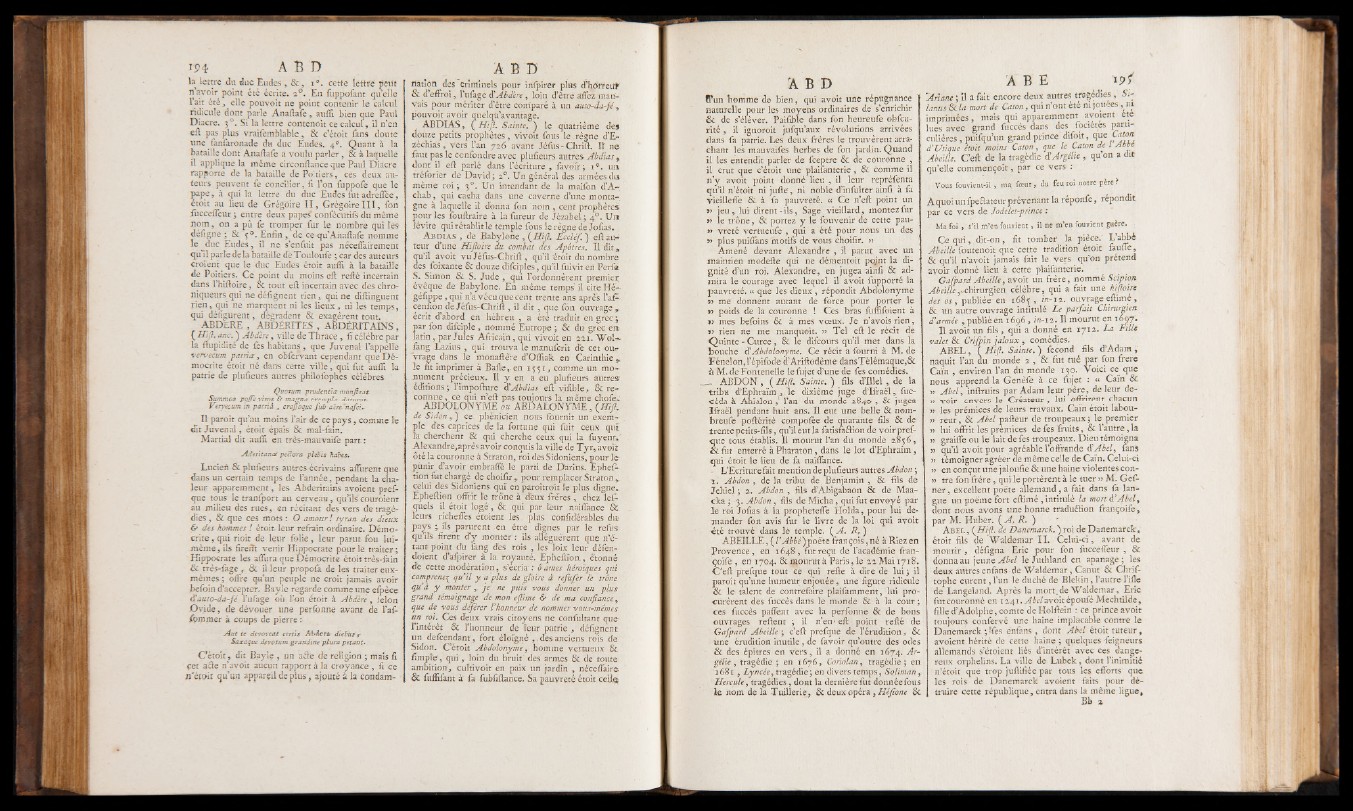 194 A B D
la lettre du duc Eudes, &, 1°. cette lettre peut
n'avoir point été écrite. 2°. En supposant qu'elle
l'ait été, elle pouvoit ne point contenir le calcul
ridicule dont parle Anastase, aussi bien que Paul
Diacre. 3°. Si la lettre contenoit ce calcul, il n'en
est pas plus vraisemblable, & c'étoit sans doute
une fanfaronade du duc Eudes. 4°. Quant à la
bataille dont Anastase a voulu parler, & à laquelle
il applique la même circonstance que Paul Diacre
rapporte de la bataille de Poitiers, ces deux au-
teurs peuvent se concilier, si l'on suppose que le
pape, à qui la lettre du duc Eudes fut adressée,
étoit au lieu de Grégoire II, Grégoire III, son
successeur; entre deux papes consécutifs du même
nom, on a pu se tromper sur le nombre qui les
désigne; & 5°. Enfin, de ce qu'Anastase nomme
le duc Eudes, il ne s'ensuit pas nécessairement
qu'il parle de la bataille de Toulouse; car des auteurs
croient que le duc Eudes étoit aussi à la bataille
de Poitiers. Ce point du moins est resté incertain
dans l'histoire, & tout est incertain avec des chro-
niqueurs qui ne désignent rien, qui ne distinguent
rien, qui ne marquent ni les lieux, ni les temps,
qui défigurent, dégradent & exagèrent tout.
ABDERE, ABDERITES, ABDÉRITAINS,
(Hist. anc.) Abdère, ville de Thrace, si célèbre par
la stupidité de ses habitans, que Juvenal l'appelle
vervecum patria, en observant cependant que Dé-
mocrite étoit né dans cette ville, qui fut aussi la
patrie de plusieurs autres philosophes célèbres
Quorum prudentia monstrat
Summos posse viros & magna exempla daturos
Vervecum in patriâ, crassoque sub aëre nasci.
Il paroît qu'au moins l'air de ce pays, comme le
dit Juvenal, étoit épais & mal-sain.
Martial dit aussi en très-mauvaise part:
Abderitanæ pectora plebis habes.
Lucien & plusieurs autres écrivains assurent que
dans un certain temps de l'année, pendant la cha-
leur apparemment, les Abderitains avoient pres-
que tous le transport au cerveau, qu'ils couroient
au milieu des rues, en récitant des vers de tragé-
dies, & que ces mots: O amour! tyran des dieux
& des hommes! étoit leur refrain ordinaire. Démo-
crite, qui rioit de leur folie, leur parut fou lui-
même, ils firent venir Hippocrate pour le traiter;
Hippocrate les assura que Démocrite étoit très-sain
& très-sage, & il leur proposa de les traiter eux-
mêmes; offre qu'un peuple ne croit jamais avoir
besoin d'accepter. Bayle regarde comme une espèce
d'auto-da-fé l'usage où l'on étoit à Abdère, selon
Ovide, de dévouer une personne avant de l'as-
sommer à coups de pierre:
Aut te devoveat certis Abdera diebus,
Saxaque devotum grandine plura petant.
C'étoit, dit Bayle, un acte de religion; mais si
cet acte n'avoit aucun rapport à la croyance, si ce
n'étoit qu'un appareil de plus, ajouté à la condam-
A B D
nation des criminels pour inspirer plus d'horreur
& d'effroi, l'usage d'Abdère, loin d'être assez mau-
vais pour mériter d'être comparé à un auto-da-fé,
pouvoit avoir quelqu'avantage.
ABDIAS, (Hist. Sainte.) le quatrième des
douze petits prophètes, vivoit sous le règne d'E-
zéchias, vers l'an 726 avant Jésus-Christ. Il ne
faut pas le confondre avec plusieurs autres Abdias,
dont il est parlé dans l'écriture, savoir; 1°. un
trésorier de David; 2°. Un général des armées du
même roi; 3°. Un intendant de la maison d'A-
chab, qui cacha dans une caverne d'une monta-
gne à laquelle il donna son nom, cent prophètes
pour les soustraire à la fureur de Jézabel; 4°. Un
lévite qui rétablit le temple sous le règne de Josias.
ABDIAS, de Babylone, (Hist. Ecclés.) est au-
teur d'une Histoire du combat des Apôtres. Il dit,
qu'il avoit vu Jésus-Christ, qu'il étoit du nombre
des soixante & douze disciples, qu'il suivit en Perse
S. Simon & S. Jude, qui l'ordonnèrent premier
évêque de Babylone. En même temps il cite Hé-
gésippe, qui n'a vécu que cent trente ans après l'as-
cension de Jésus-Christ, il dit, que son ouvrage,
écrit d'abord en hébreu, a été traduit en grec;
par son disciple, nommé Eutrope; & du grec en
latin, par Jules Africain, qui vivoit en 221. Wol-
fang Lazius, qui trouva le manuscrit de cet ou-
vrage dans le monastère d'Ossiak en Carinthie,
le fit imprimer à Basle, en 1551, comme un mo-
nument précieux. Il y en a eu plusieurs autres
éditions; l'imposture d'Abdias est visible, & re-
connue, ce qui n'est pas toujours la même chose.
ABDOLONYME ou ABDALONYME, (Hist.
de Sidon,) ce phénicien nous fournit un exem-
ple des caprices de la fortune qui fuit ceux qui
la cherchent & qui cherche ceux qui la fuyent.
Alexandre, après avoir conquis la ville de Tyr, avoit
ôté la couronne à Straton, roi des Sidoniens, pour le
punir d'avoir embrassé le parti de Darius. Ephes-
tion fut chargé de choisir, pour remplacer Straton,
celui des Sidoniens qui en paroîtroit le plus digne.
Ephestion offrit le trône à deux frères, chez les-
quels il étoit logé, & qui par leur naissance &
leurs richesses étoient les plus considérables du
pays; ils parurent en être dignes par le refus
qu'ils firent d'y monter: ils alléguèrent que n'é-
tant point du sang des rois, les loix leur défen-
doient d'aspirer à la royauté. Ephestion, étonné
de cette modération, s'écria: ô ames héroïques qui
comprenez qu'il y a plus de gloire à refuser le trône
qu'à y monter, je ne puis vous donner un plus
grand témoignage de mon estime & de ma confiance,
que de vous déférer l'honneur de nommer vous-mêmes
un roi. Ces deux vrais citoyens ne consultant que
l'intérêt & l'honneur de leur patrie, désignent
un descendant, fort éloigné, des anciens rois de
Sidon. C'étoit Abdolonyme, homme vertueux &
simple, qui, loin du bruit des armes & de toute
ambition, cultivoit en paix un jardin, nécessaire
& suffisant à sa subsistance. Sa pauvreté étoit celle
A B D
d'un homme de bien, qui avoit une répugnance
naturelle pour les moyens ordinaires de s'enrichir
& de s'élever. Paisible dans son heureuse obscu-
rité, il ignoroit jusqu'aux révolutions arrivées
dans sa patrie. Les deux frères le trouvèrent arra-
chant les mauvaises herbes de son jardin. Quand
il les entendit parler de sceptre & de couronne,
il crut que c'étoit une plaisanterie, & comme il
n'y avoit point donné lieu, il leur représenta
qu'il n'étoit ni juste, ni noble d'insulter ainsi à sa
vieillesse & à sa pauvreté. « Ce n'est point un
» jeu, lui dirent-ils, Sage vieillard, montez sur
» le trône, & portez y le souvenir de cette pau-
» vreté vertueuse, qui a été pour nous un des
» plus puissans motifs de vous choisir. »
Amené devant Alexandre, il parut avec un
maintien modeste qui ne démentoit point la di-
gnité d'un roi. Alexandre, en jugea ainsi & ad-
mira le courage avec lequel il avoit supporté la
pauvreté. « que les dieux, répondit Abdolonyme
» me donnent autant de force pour porter le
» poids de la couronne! Ces bras suffisoient à
» mes besoins & à mes vœux. Je n'avois rien,
» rien ne me manquoit. » Tel est le récit de
Quinte-Curce, & le discours qu'il met dans la
bouche d'Abdolonyme. Ce récit a fourni à M. de
Fénelon, l'épisode d'Aristodème dans Télémaque, &
à M. de Fontenelle le sujet d'une de ses comédies.
ABDON, (Hist. Sainte.) fils d'Illel, de la
tribu d'Ephraïm, le dixième juge d'Israël, suc-
céda à Ahialon, l'an du monde 2840, & jugea
Israël pendant huit ans. Il eut une belle & nom-
breuse postérité composée de quarante fils & de
trente petits-fils, qu'il eut la satisfaction de voir pres-
que tous établis. Il mourut l'an du monde 2856,
& fut enterré à Pharaton, dans le lot d'Ephraïm,
qui étoit le lieu de sa naissance.
L'Ecriture fait mention de plusieurs autres Abdon;
1. Abdon, de la tribu de Benjamin, & fils de
Jehiel; 2. Abdon, fils d'Abigabaon & de Maa-
cka; 3. Abdon, fils de Micha, qui fut envoyé par
le roi Josias à la prophetesse Holda, pour lui de-
mander son avis sur le livre de la loi qui avoit
été trouvé dans le temple. (A. R.)
ABEILLE, (l'Abbé) poëte françois, né à Riez en
Provence, en 1648, fut reçu de l'académie fran-
çoise, en 1704, & mourut à Paris, le 22 Mai 1718.
C'est presque tout ce qui reste à dire de lui; il
paroît qu'une humeur enjouée, une figure ridicule
& le talent de contrefaire plaisamment, lui pro-
curèrent des succès dans le monde & à la cour;
ces succès passent avec la personne & de bons
ouvrages restent; il n'en est point resté de
Gaspard Abeille; c'est presque de l'érudition, &
une érudition inutile, de savoir qu'outre des odes
& des épitres en vers, il a donné en 1674. Ar-
gélie, tragédie; en 1676, Coriolan, tragédie; en
1681, Lyncée, tragédie; en divers temps, Soliman,
Hercule, tragédies, dont la dernière fut donnée sous
le nom de la Tuillerie, & deux opéra, Hésione &
A B E 195
Ariane; il a fait encore deux autres tragédies, Si-
lanus & la mort de Caton, qui n'ont été ni jouées, ni
imprimées, mais qui apparemment avoient été
lues avec grand succès dans des sociétés parti-
culières, puisqu'un grand prince disoit, que Caton
d'Utique étoit moins Caton, que le Caton de l'Abbé
Abeille. C'est de la tragédie d'Argélie, qu'on a dit
qu'elle commençoit, par ce vers:
Vous souvient-il, ma sœur, du feu roi notre père?
A quoi un spectateur prévenant la réponse, répondit
par ce vers de Jodelet-prince:
Ma foi, s'il m'en souvient, il ne m'en souvient guère.
Ce qui, dit-on, fit tomber la pièce. L'abbé
Abeille soutenoit que cette tradition étoit fausse,
& qu'il n'avoit jamais fait le vers qu'on prétend
avoir donné lieu à cette plaisanterie.
Gaspard Abeille, avoit un frère, nommé Scipion
Abeille, chirurgien célèbre, qui a fait une histoire
des os, publiée en 1685, in-12. ouvrage estimé,
& un autre ouvrage intitulé Le parfait Chirurgien
d'armée, publié en 1696, in-12. Il mourut en 1697.
Il avoit un fils, qui a donné en 1712. La Fille
valet & Crispin jaloux, comédies.
ABEL, (Hist. Sainte.) second fils d'Adam,
naquit l'an du monde 2, & fut tué par son frere
Caïn, environ l'an du monde 130. Voici ce que
nous apprend la Genèse à ce sujet: « Caïn &
» Abel, instruits par Adam leur père, de leur de-
» voir envers le Créateur, lui offrirent chacun
» les prémices de leurs travaux. Caïn étoit labou-
» reur, & Abel pasteur de troupeaux; le premier
» lui offrit les prémices de ses fruits, & l'autre, la
» graisse ou le lait de ses troupeaux. Dieu témoigna
» qu'il avoit pour agréable l'offrande d'Abel, sans
» témoigner agréer de même celle de Caïn. Celui-ci
» en conçut une jalousie & une haine violentes con-
» tre son frère, qui le portèrent à le tuer » M. Ges-
ner, excellent poëte allemand, a fait dans sa lan-
gue un poëme fort estimé, intitulé la mort d'Abel,
dont nous avons une bonne traduction françoise,
par M. Huber. (A. R.)
ABEL, (Hist. de Danemarck.) roi de Danemarck,
étoit fils de Waldemar II. Celui-ci, avant de
mourir, désigna Eric pour son successeur, &
donna au jeune Abel le Juthland en apanage; les
deux autres enfans de Waldemar, Canut & Chris-
tophe eurent, l'un le duché de Blekin, l'autre l'isle
de Langeland. Après la mort de Waldemar, Eric
fut couronné en 1241. Abel avoit épousé Mechtilde,
fille d'Adolphe, comte de Holstein: ce prince avoit
toujours conservé une haine implacable contre le
Danemarck; ses enfans, dont Abel étoit tuteur,
avoient hérité de cette haine; quelques seigneurs
allemands s'étoient liés d'intérêt avec ces dange-
reux orphelins. La ville de Lubek, dont l'inimitié
n'étoit que trop justifiée par tous les efforts que
les rois de Danemarck avoient faits pour dé-
truire cette république, entra dans la même ligue,
Bb 2